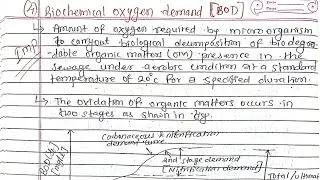 (4) Biochemical oxygen demand [BOD]
↳ Amount of oxygen required by microorganism
Imp to carryout biological decomposition of biodegra-
-dable organic matters (OM) presence in the
sewage under aerobic condition at a standard
temperature of 20°c for a specified duration.
↳ The oxidation of organic matters occurs in
two stages as shown in fig.
Carbonaceous & nitrification
demand curve
2nd stage demand
[Nitrification demand]
BOD
(mg/l)
Total/ultimat